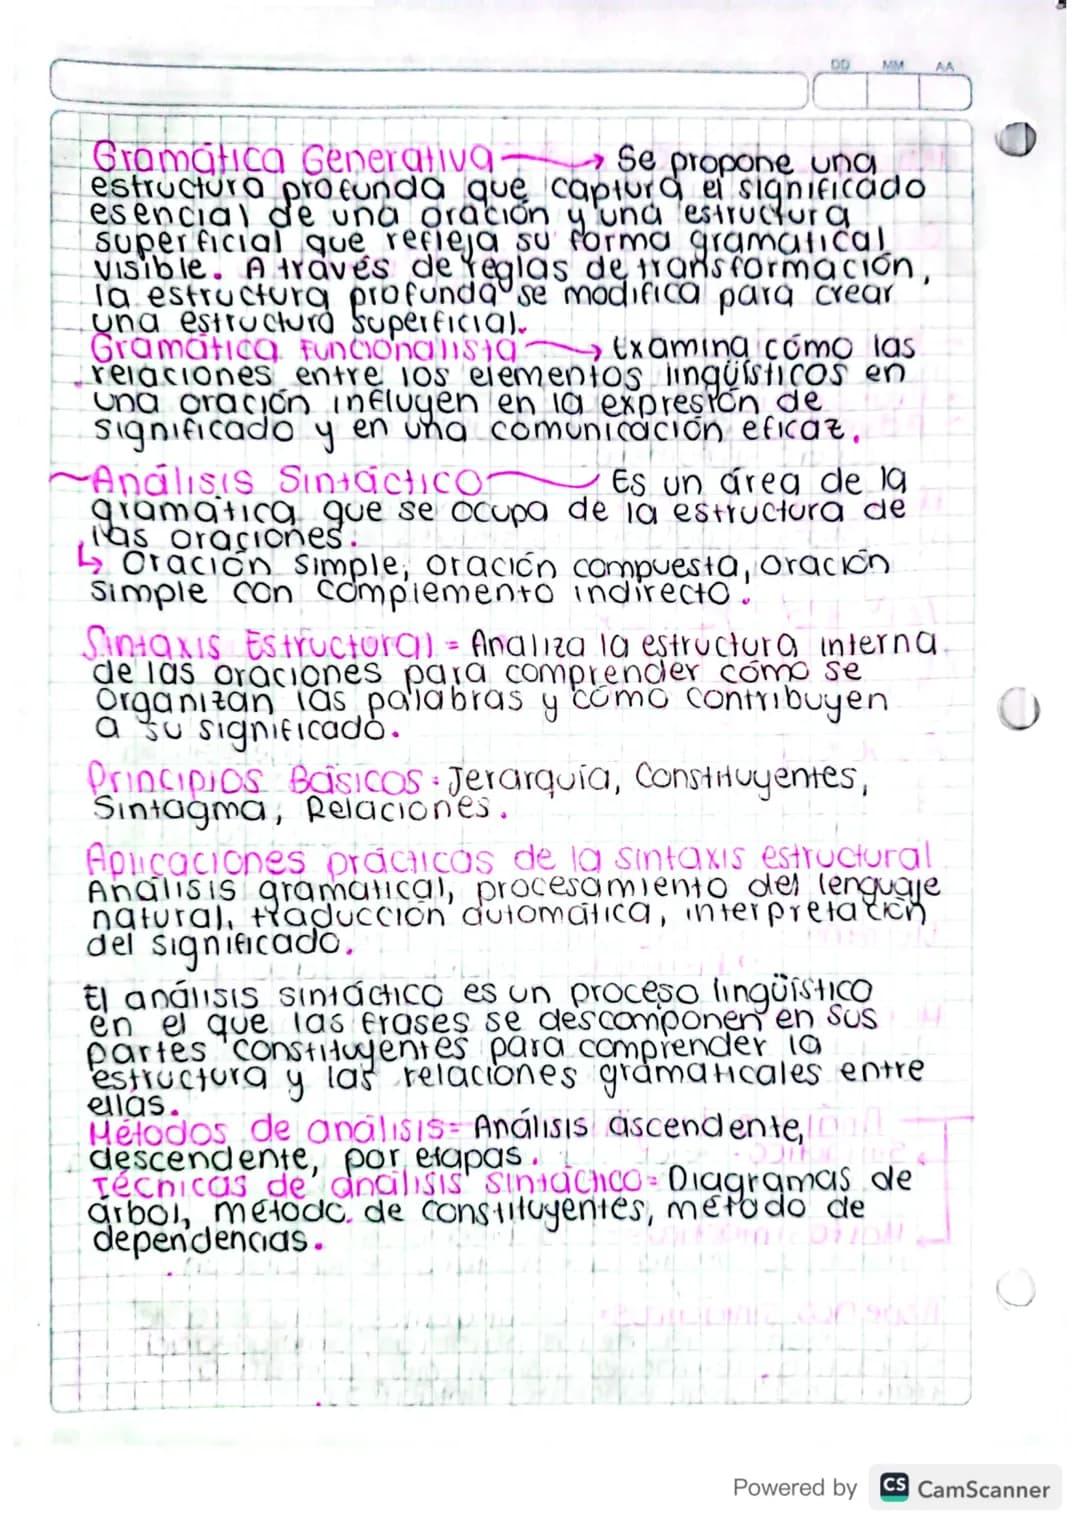 DD MM AA
Gramática Generativa → Se propone una
estructura profunda que captura el significado
esencial de una oración y una estructura
superficial que refleja su forma gramatical
visible. A través de reglas de transformación,
la estructura profunda se modifica para crear
una estructura superficial.
Gramática Funcionalista → Examina cómo las
relaciones entre los elementos lingüísticos en
una oración influyen en la expresión de
significado y en una comunicación eficaz.
Análisis Sintáctico Es un área de la
gramática que se ocupa de la estructura de
las oraciones.
↳ Oración simple, oración compuesta, oración
simple con complemento indirecto.
Sintaxis Estructural = Analiza la estructura interna
de las oraciones para comprender cómo se
organizan las palabras y cómo contribuyen
a su significado.
Principios Básicos: Jerarquía, Constituyentes,
Sintagma, Relaciones.
Aplicaciones prácticas de la sintaxis estructural
Análisis gramatical, procesamiento del lenguaje
natural, traducción automática, interpretación
del significado.
El análisis sintáctico es un proceso lingüístico
en el que las frases se descomponen en sus
partes constituyentes para comprender la
estructura y las relaciones gramaticales entre
ellas.
Métodos de análisis= Análisis ascendente,
descendente, por etapas.
Técnicas de análisis sintáctico= Diagramas de
árbol, método de constituyentes, método de
dependencias.
Powered by CS CamScanner